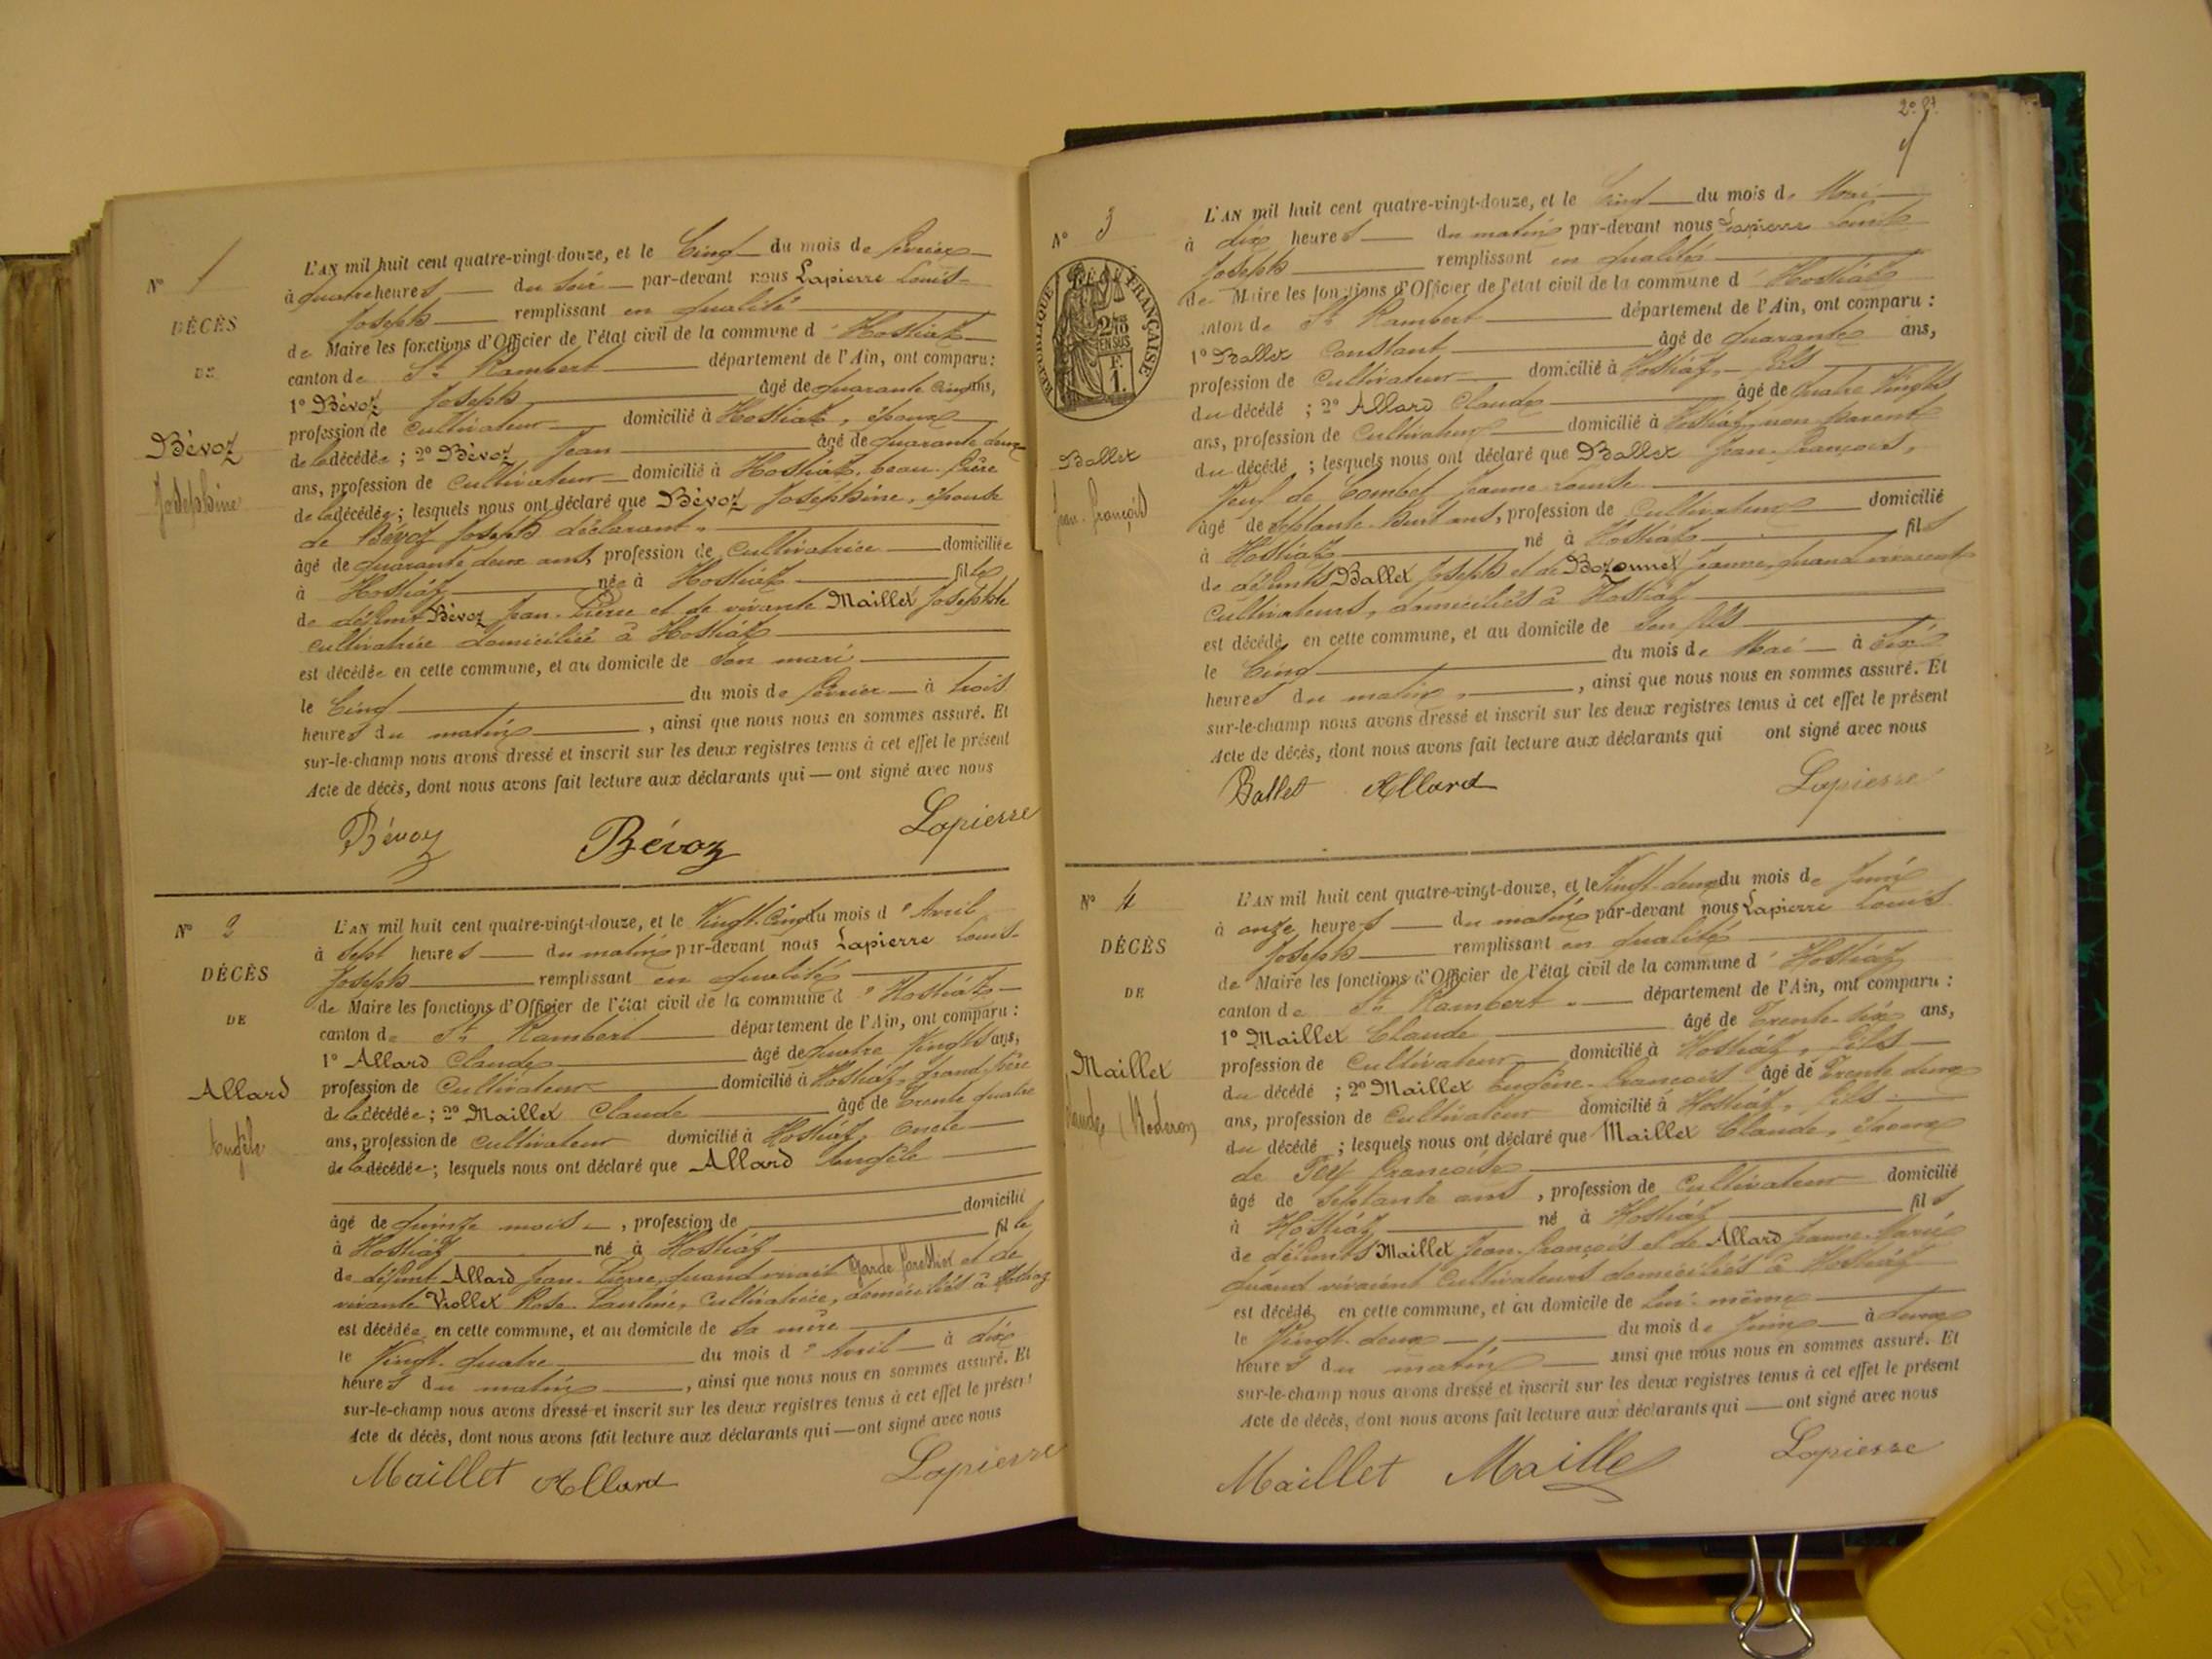 N° 1
DÉCÈS
DE
Bévoz
Joséphine
L'AN mil huit cent quatre-vingt-douze, et le Cinq du mois de février
à quatre heures du soir par-devant nous Lapierre Louis-
Joseph remplissant en qualité
de Maire les fonctions d'Officier de l'état civil de la commune d' Hostiaz
canton de St Rambert département de l'Ain, ont comparu:
1° Bévoz Joseph âgé de quarante cinq ans,
profession de Cultivateur domicilié à Hostiaz, époux
de la décédée; 2° Bévoz Jean âgé de quarante deux
ans, profession de Cultivateur domicilié à Hostiaz, beau-frère
de la décédée; lesquels nous ont déclaré que Bévoz Joséphine, épouse
de Bévoz Joseph déclarant
âgé de quarante deux ans, profession de Cultivatrice domiciliée
à Hostiaz née à Hostiaz fille
de défunt Bévoz Jean-Pierre et de vivante Maillet Josephte
cultivatrice domiciliée à Hostiaz
est décédée en cette commune, et au domicile de son mari
le Cinq du mois de février à trois
heures du matin, ainsi que nous nous en sommes assuré. Et
sur-le-champ nous avons dressé et inscrit sur les deux registres tenus à cet effet le présent
Acte de décès, dont nous avons fait lecture aux déclarants qui — ont signé avec nous
Bévoz Bévoz Lapierre
N° 2
DÉCÈS
DE
Allard
Angèle
L'AN mil huit cent quatre-vingt-douze, et le Vingt-Cinq du mois d'Avril
à sept heures du matin par-devant nous Lapierre Louis-
Joseph remplissant en qualité
de Maire les fonctions d'Officier de l'état civil de la commune d'Hostiaz
canton de St Rambert département de l'Ain, ont comparu:
1° Allard Claude âgé de quatre Vingts ans,
profession de Cultivateur domicilié à Hostiaz, grand-père
de la décédée; 2° Maillet Claude âgé de Trente quatre
ans, profession de Cultivateur domicilié à Hostiaz, oncle
de la décédée; lesquels nous ont déclaré que Allard Angèle
domicilié
âgé de quinze mois, profession de
à Hostiaz né à Hostiaz fille
de défunt Allard Jean-Pierre, quand vivait Garde forestier et de
vivante Viollet Rose-Pauline, Cultivatrice, domiciliés à Hostiaz
est décédée en cette commune, et au domicile de sa mère
le Vingt-quatre du mois d'Avril à dix
heures du matin, ainsi que nous nous en sommes assuré. Et
sur-le-champ nous avons dressé et inscrit sur les deux registres tenus à cet effet le présent
Acte de décès, dont nous avons fait lecture aux déclarants qui — ont signé avec nous
Maillet Allard Lapierre
N° 3
RÉPUBLIQUE FRANÇAISE
EN SUS
F.
1.
Ballet
Jean-François
L'AN mil huit cent quatre-vingt-douze, et le Cinq du mois de Mai
à dix heures du matin par-devant nous Lapierre Louis
Joseph remplissant en qualité
de Maire les fonctions d'Officier de l'état civil de la commune d'Hostiaz
canton de St Rambert département de l'Ain, ont comparu:
1° Ballet Constant âgé de quarante ans,
profession de Cultivateur domicilié à Hostiaz, fils
du décédé; 2° Allard Claude âgé de quatre Vingts
ans, profession de Cultivateur domicilié à Hostiaz, non parent
du décédé; lesquels nous ont déclaré que Ballet Jean-François,
Veuf de Combet Jeanne-Louise
âgé de septante-huit ans, profession de Cultivateur domicilié
à Hostiaz né à Hostiaz fils
de défunts Ballet Joseph et de Bozonnet Jeanne, quand vivaient
Cultivateurs, domiciliés à Hostiaz
est décédé en cette commune, et au domicile de son fils
le Cinq du mois de Mai à six
heures du matin, ainsi que nous nous en sommes assuré. Et
sur-le-champ nous avons dressé et inscrit sur les deux registres tenus à cet effet le présent
Acte de décès, dont nous avons fait lecture aux déclarants qui ont signé avec nous
Ballet Allard Lapierre
N° 4
DÉCÈS
DE
Maillet
Claude (Roderon)
L'AN mil huit cent quatre-vingt-douze, et le Vingt-deux du mois de Juin
à onze heures du matin par-devant nous Lapierre Louis
Joseph remplissant en qualité
de Maire les fonctions d'Officier de l'état civil de la commune d'Hostiaz
canton de St Rambert département de l'Ain, ont comparu:
1° Maillet Claude âgé de Trente-six ans,
profession de Cultivateur domicilié à Hostiaz, fils
du décédé; 2° Maillet Eugène-François âgé de Trente deux
ans, profession de Cultivateur domicilié à Hostiaz, fils
du décédé; lesquels nous ont déclaré que Maillet Claude, époux
de Françoise
âgé de septante ans, profession de Cultivateur domicilié
à Hostiaz né à Hostiaz fils
de défunts Maillet Jean-François et de Allard Jeanne-Marie
quand vivaient Cultivateurs domiciliés à Hostiaz
est décédé en cette commune, et au domicile de lui-même
le Vingt-deux du mois de Juin à deux
heures du matin ainsi que nous nous en sommes assuré. Et
sur-le-champ nous avons dressé et inscrit sur les deux registres tenus à cet effet le présent
Acte de décès, dont nous avons fait lecture aux déclarants qui — ont signé avec nous
Maillet Maillet Lapierre